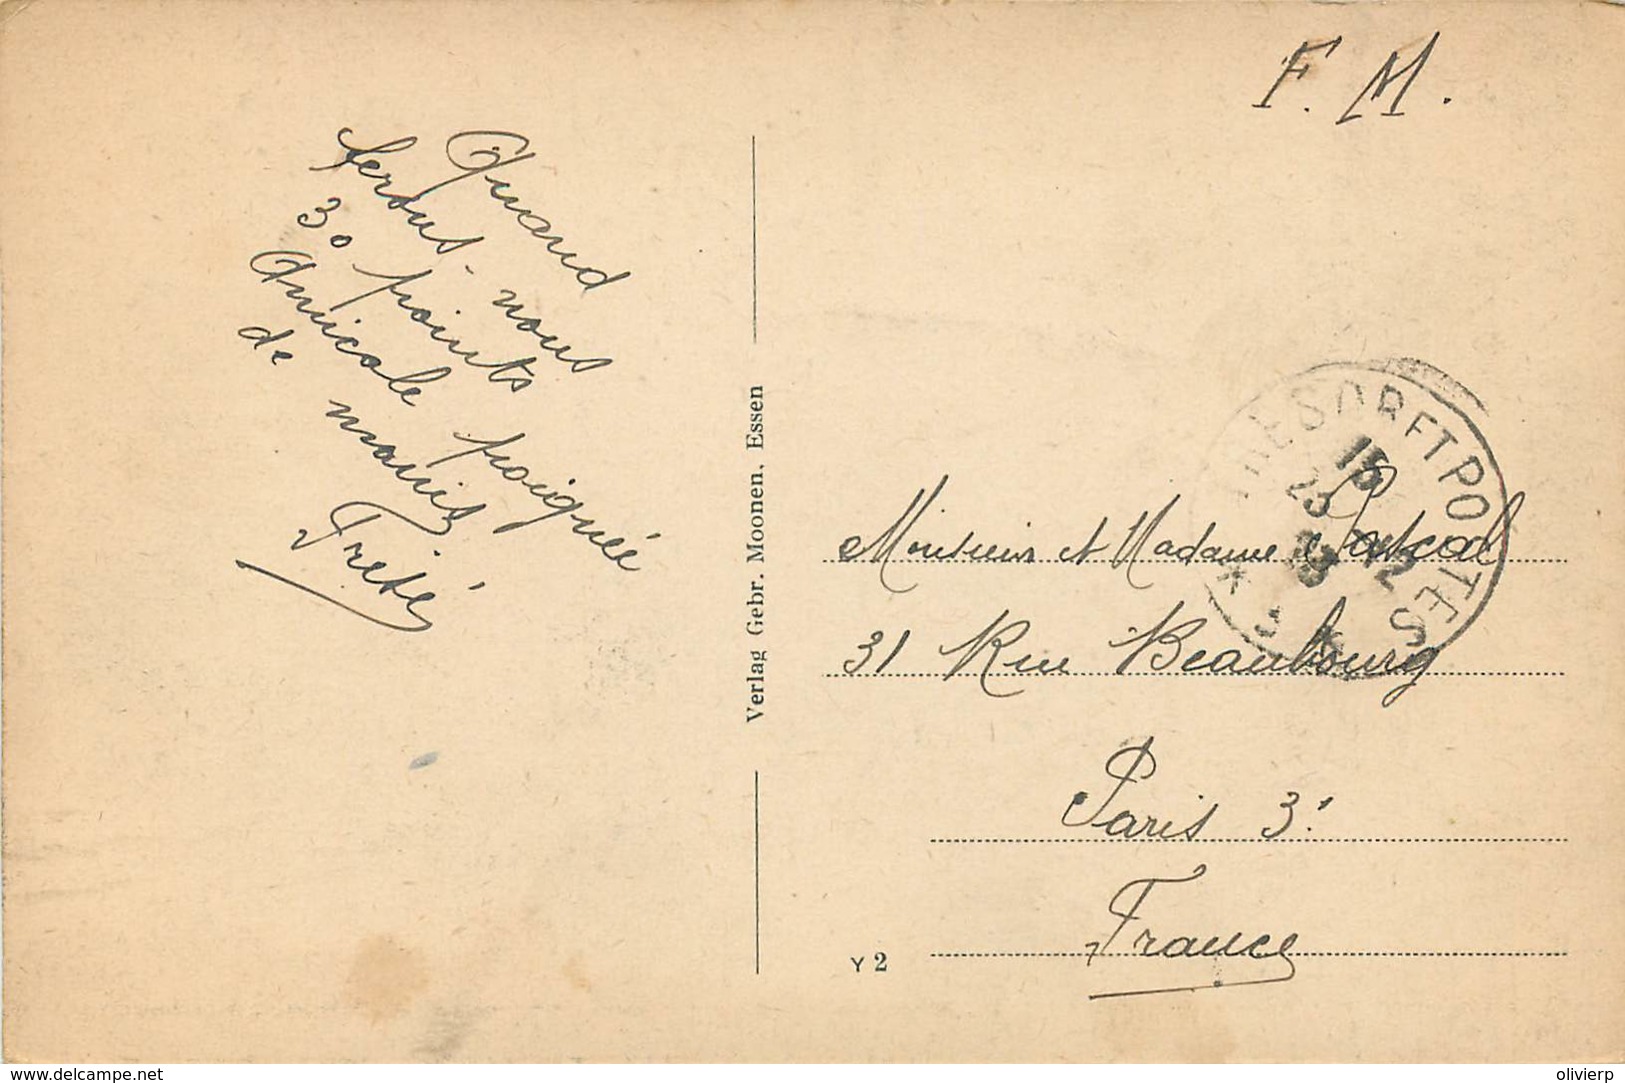 F. M.
Quand
serons-nous
30 points
Amicale poignée
de mains
Frété
Verlag Gebr. Moonen, Essen
TRESOR ET POSTES
15
23 12
Monsieur et Madame Pascal
31 Rue Beaubourg
Paris 3.
France
Y 2
www.delcampe.net
olivierp